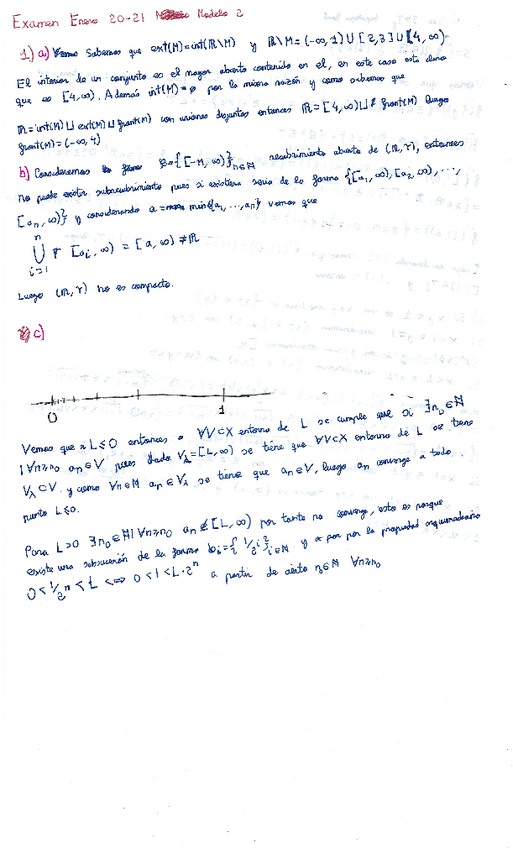 Examen Enero 20-21 Modelo 2
1) a) Sabemos que ext(M)=int(ℝ\M) y ℝ\M=(-∞,1)∪[2,3]∪[4,∞)
El interior de un conjunto es el mayor abierto contenido en el, en este caso esta claro
que es [4,∞). Además int(M)=∅ por la misma razón y como sabemos que
ℝ=int(M)⊔ext(M)⊔front(M) con uniones disjuntas entonces ℝ=[4,∞)⊔front(M) luego
front(M)=(-∞,4)
b) Consideremos B={[-n,∞)}n∈ℕ recubrimiento abierto de (ℝ,τ), entonces
no puede existir subrecubrimiento pues si existiera seria de la forma {[a₁,∞),[a₂,∞),...,
[aₙ,∞)} y considerando a=min{a₁,...,aₙ} vemos que
n
⋃ [aᵢ,∞) = [a,∞)≠ℝ
i=1
Luego (ℝ,τ) no es compacto.
c)
0 1
Vemos que L≤0 entonces ∀V⊂X entorno de L se cumple que ∃n₀∈ℕ
|∀n≥n₀ aₙ∈V pues dado V_λ=[L,∞) se tiene que ∀V⊂X entorno de L se tiene
V_λ⊂V y como ∀n∈ℕ aₙ∈V_λ se tiene que aₙ∈V, luego aₙ converge a todo
punto L≤0.
Para L>0 ∃n₀∈ℕ|∀n≥n₀ aₙ∉[L,∞) por tanto no converge, esto es porque
existe una subsucesión de la forma bᵢ={1/2ⁱ}i∈ℕ y por la propiedad arquimediana
0<1/2ⁿ<L ⟺ 0<1<L·2ⁿ a partir de cierto n₀∈ℕ ∀n≥n₀